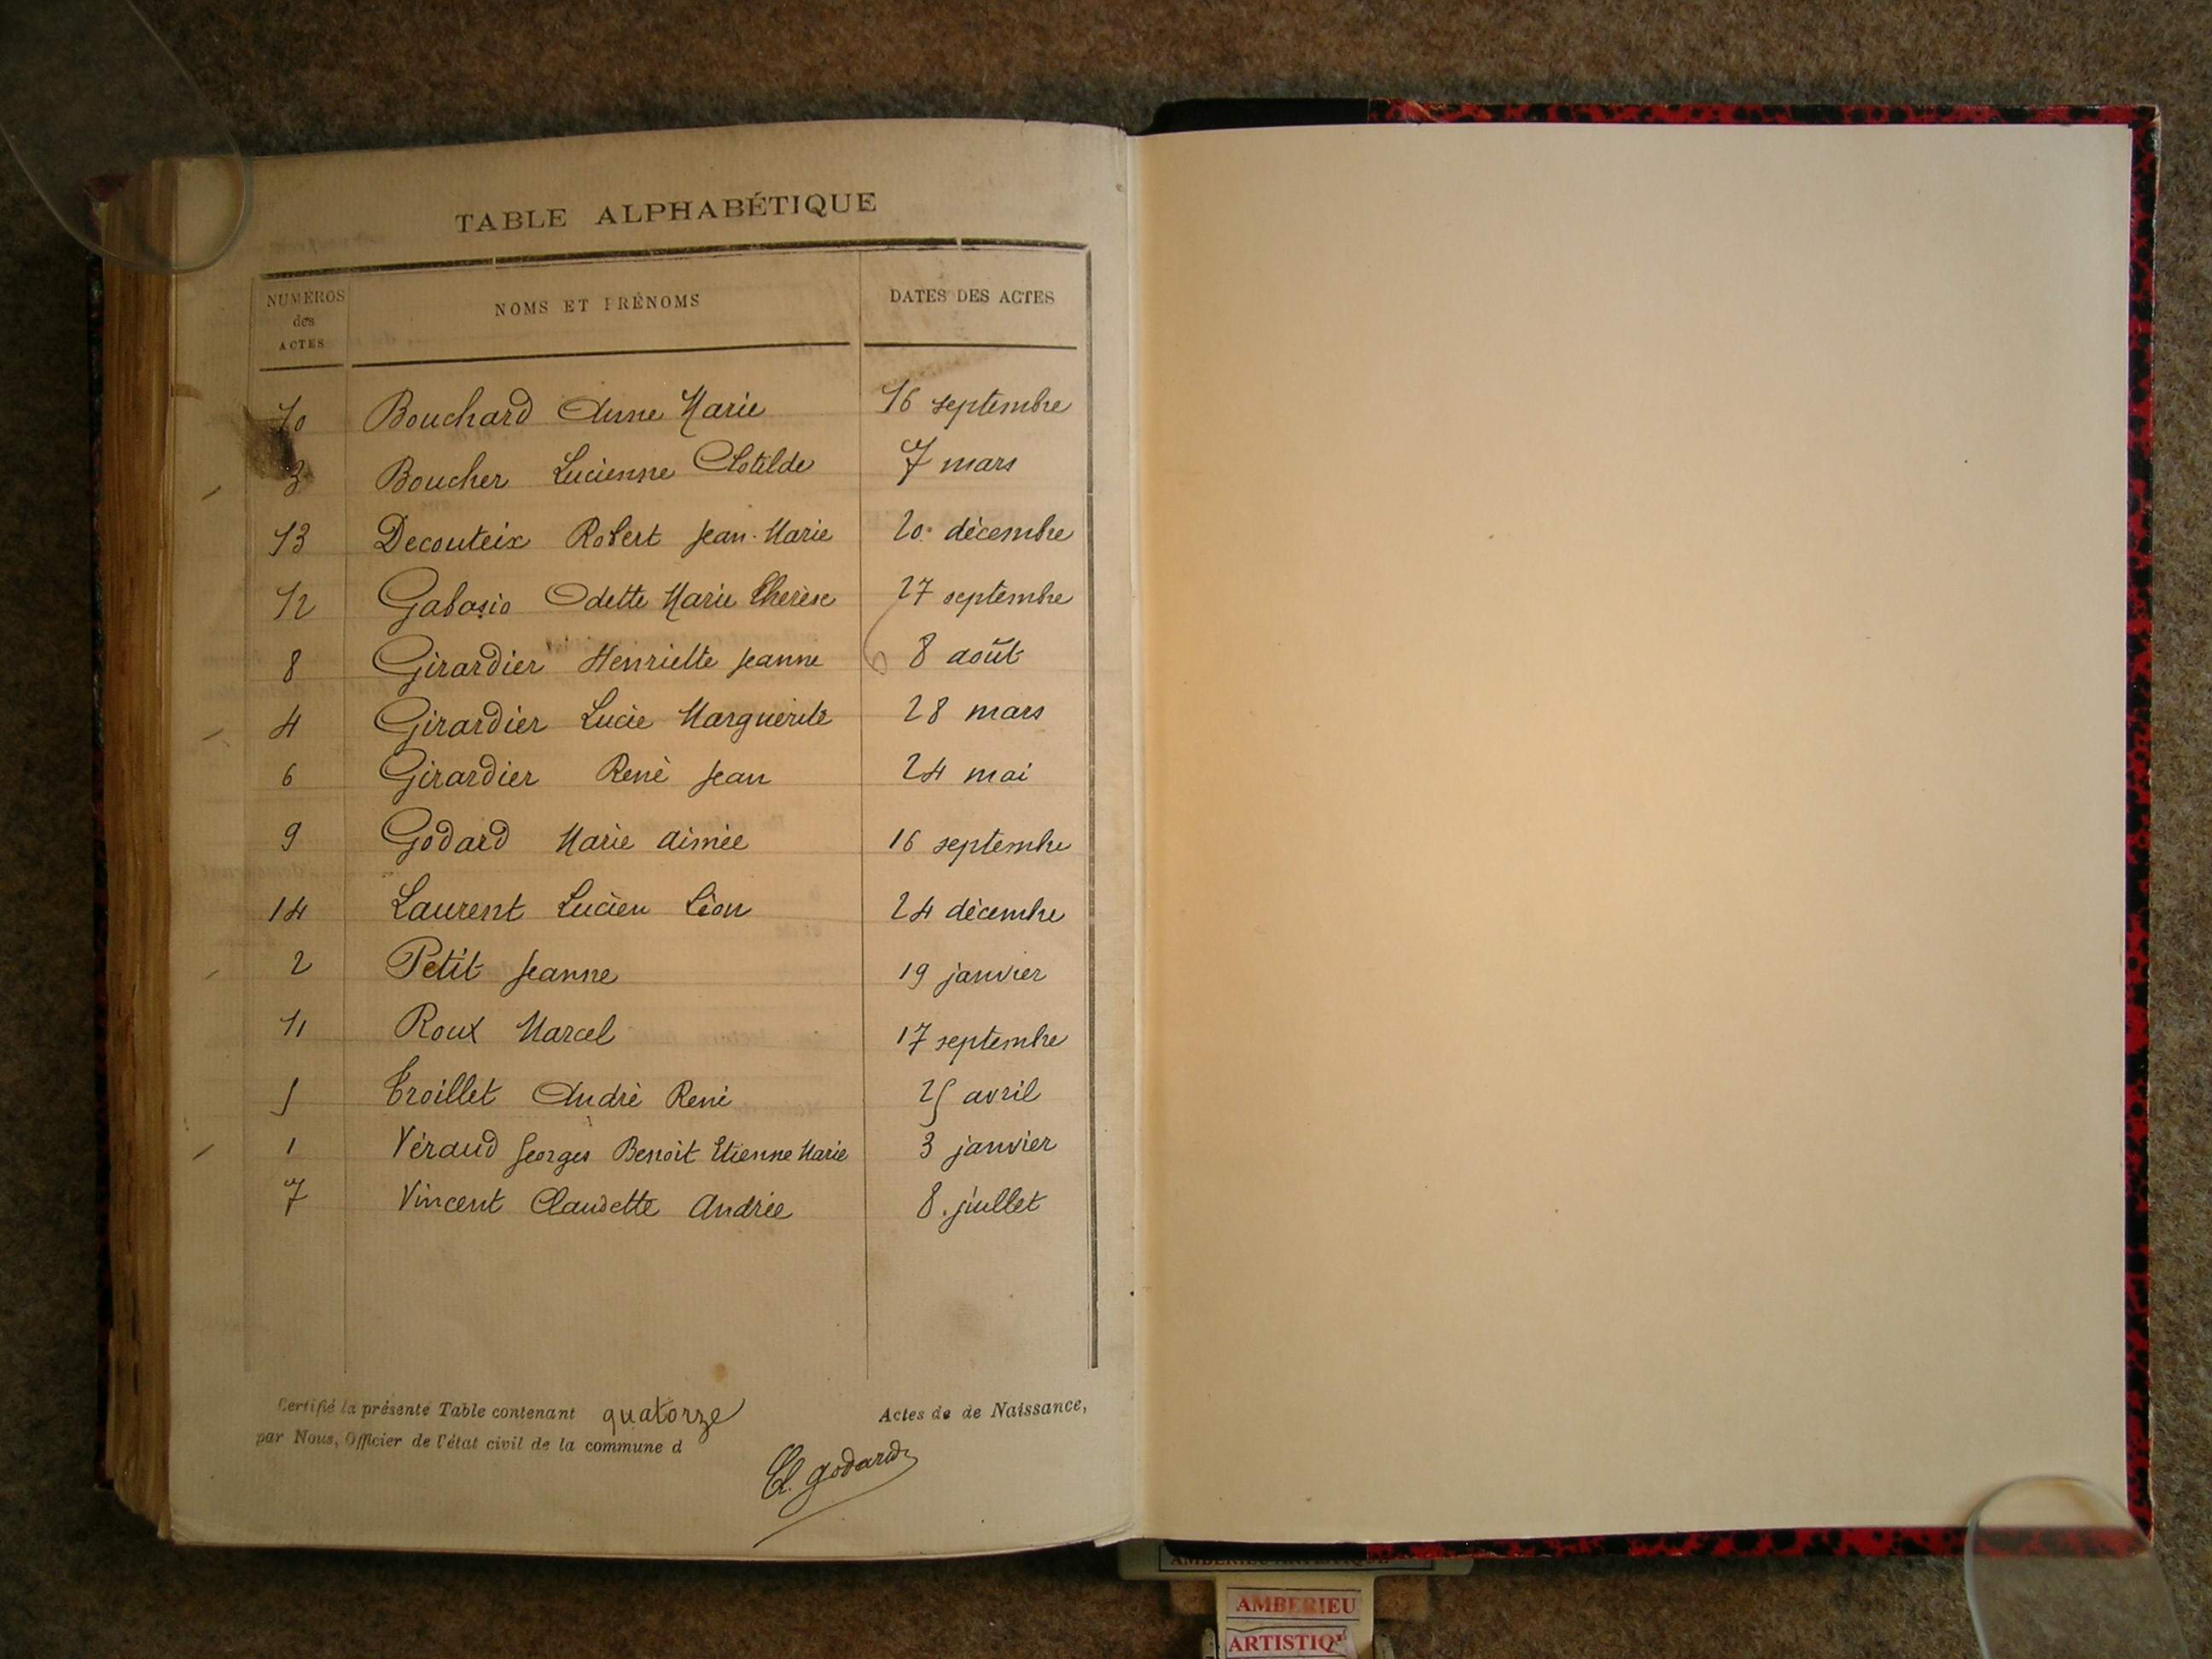 TABLE ALPHABÉTIQUE
NUMÉROS des ACTES NOMS ET PRÉNOMS DATES DES ACTES
10 Bouchard Anne Marie 16 septembre
3 Boucher Lucienne Clotilde 7 mars
13 Decouteix Robert Jean-Marie 20 décembre
12 Gabasio Odette Marie Thérèse 27 septembre
8 Girardier Henriette Jeanne 8 août
4 Girardier Lucie Marguerite 28 mars
6 Girardier René Jean 24 mai
9 Godard Marie Aimée 16 septembre
14 Laurent Lucien Léon 24 décembre
2 Petit Jeanne 19 janvier
11 Roux Marcel 17 septembre
5 Troillet André René 25 avril
1 Véraud Georges Benoit Etienne Marie 3 janvier
7 Vincent Claudette Andrée 8 juillet
Certifié la présente Table contenant quatorze Actes de de Naissance,
par Nous, Officier de l'état civil de la commune d
Cl. Godard
AMBERIEU
ARTISTIQ